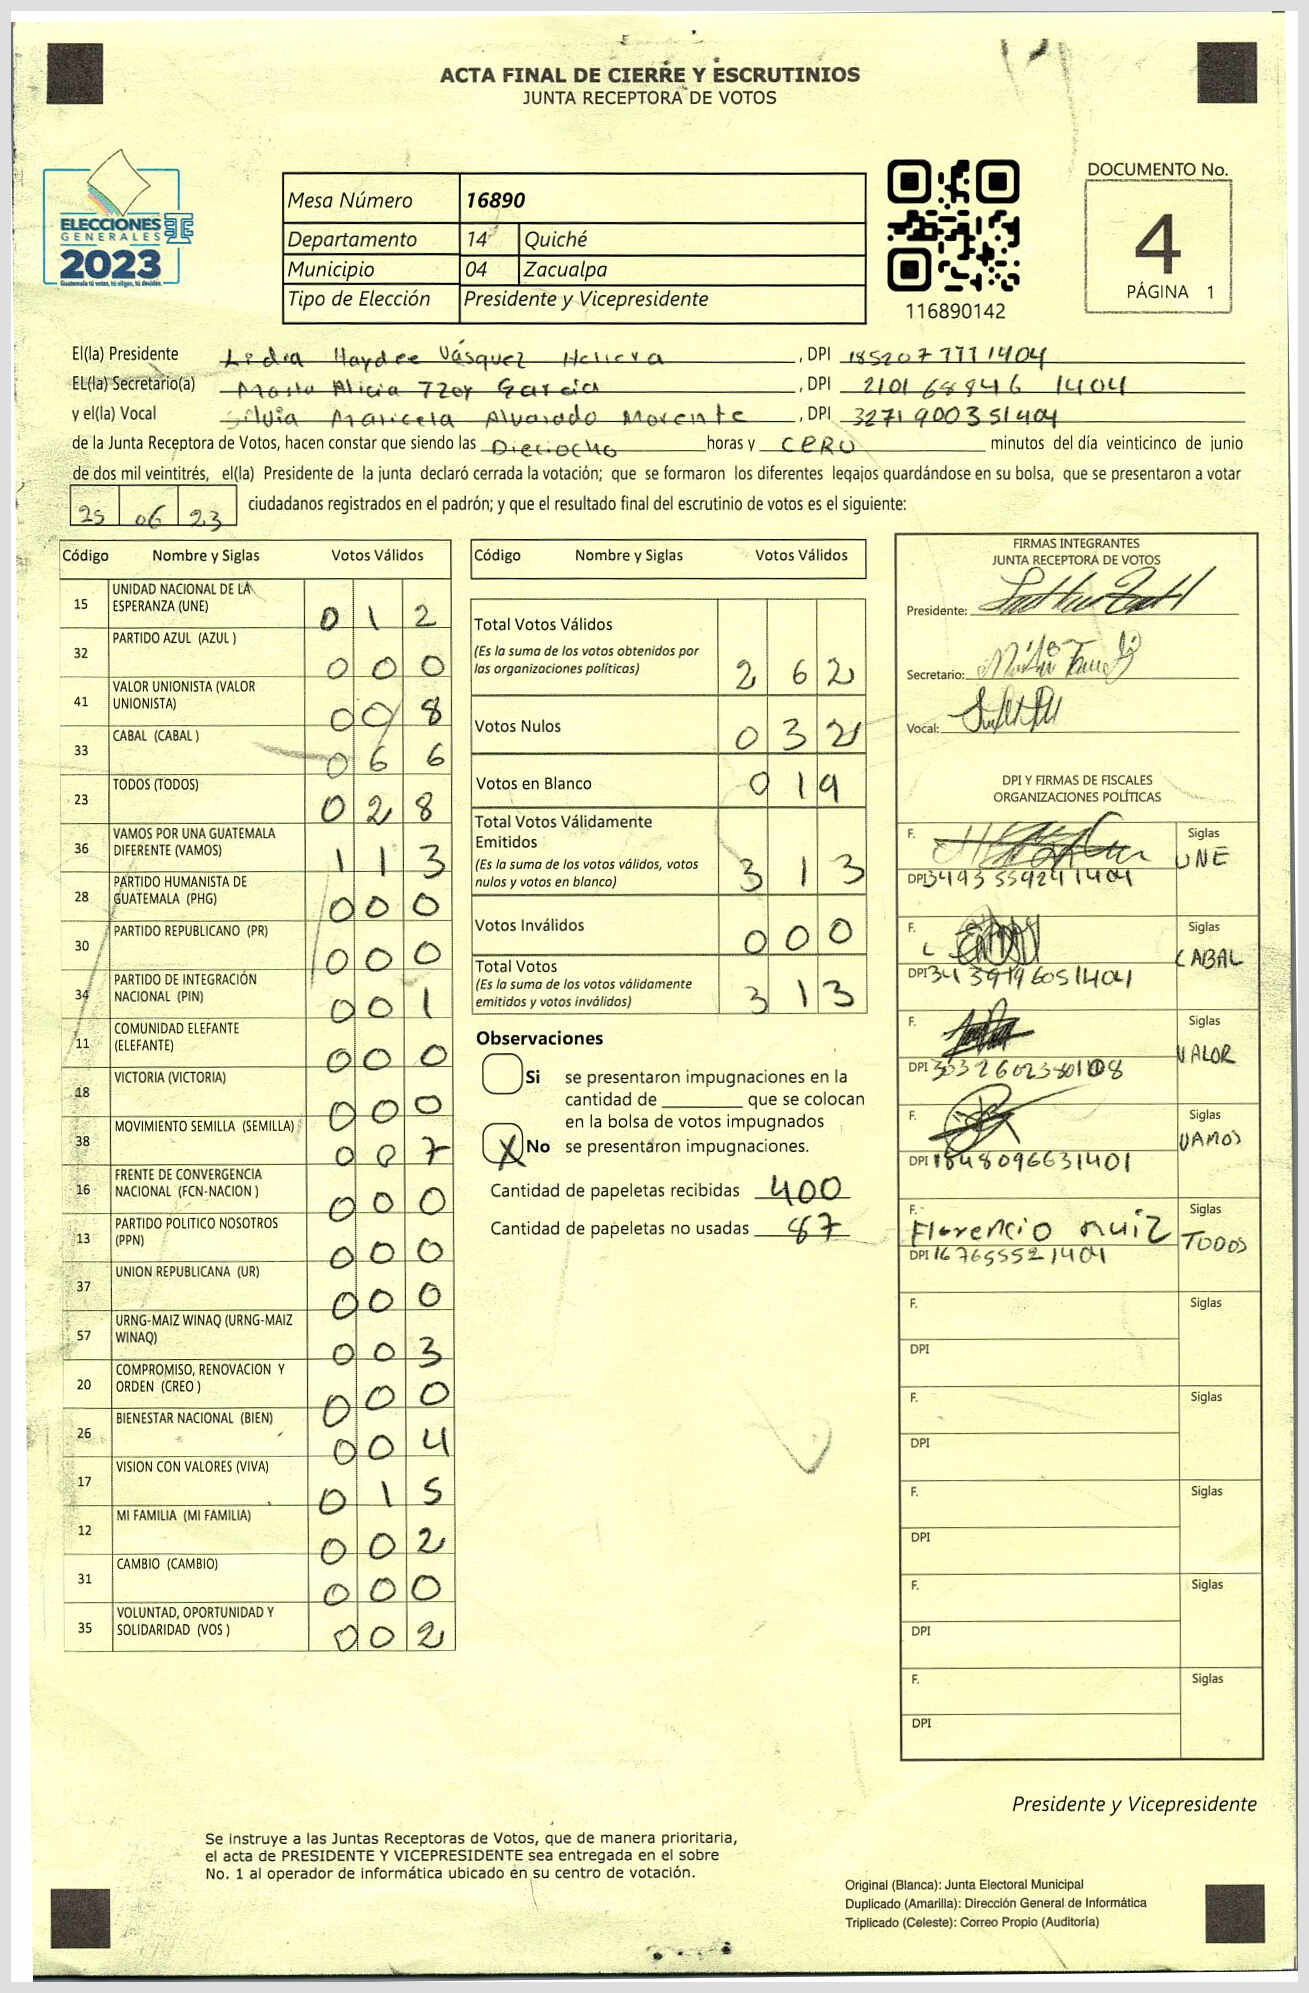 ACTA FINAL DE CIERRE Y ESCRUTINIOS
JUNTA RECEPTORA DE VOTOS
ELECCIONES
GENERALES
2023
Guatemala tú votas, tú eliges, tú decides.
Mesa Número 16890
Departamento 14 Quiché
Municipio 04 Zacualpa
Tipo de Elección Presidente y Vicepresidente
116890142
DOCUMENTO No.
4
PÁGINA 1
El(la) Presidente Lidia Haydee Vásquez , DPI
EL(la) Secretario(a) Alicia Tzoy Garcia , DPI 2101 68846 1404
y el(la) Vocal Silvia Maricela Alvarado Morente , DPI 3271900351404
de la Junta Receptora de Votos, hacen constar que siendo las Dieciocho horas y CERO minutos del día veinticinco de junio
de dos mil veintitrés, el(la) Presidente de la junta declaró cerrada la votación; que se formaron los diferentes legajos guardándose en su bolsa, que se presentaron a votar
25 06 23 ciudadanos registrados en el padrón; y que el resultado final del escrutinio de votos es el siguiente:
Código Nombre y Siglas Votos Válidos
15 UNIDAD NACIONAL DE LA
ESPERANZA (UNE) 0 1 2
32 PARTIDO AZUL (AZUL ) 0 0 0
41 VALOR UNIONISTA (VALOR
UNIONISTA) 0 0 8
33 CABAL (CABAL ) 0 6 6
23 TODOS (TODOS) 0 2 8
36 VAMOS POR UNA GUATEMALA
DIFERENTE (VAMOS) 1 1 3
28 PARTIDO HUMANISTA DE
GUATEMALA (PHG) 0 0 0
30 PARTIDO REPUBLICANO (PR) 0 0 0
34 PARTIDO DE INTEGRACIÓN
NACIONAL (PIN) 0 0 1
11 COMUNIDAD ELEFANTE
(ELEFANTE) 0 0 0
18 VICTORIA (VICTORIA) 0 0 0
38 MOVIMIENTO SEMILLA (SEMILLA) 0 0 7
16 FRENTE DE CONVERGENCIA
NACIONAL (FCN-NACION ) 0 0 0
13 PARTIDO POLITICO NOSOTROS
(PPN) 0 0 0
37 UNION REPUBLICANA (UR) 0 0 0
57 URNG-MAIZ WINAQ (URNG-MAIZ
WINAQ) 0 0 3
20 COMPROMISO, RENOVACION Y
ORDEN (CREO ) 0 0 0
26 BIENESTAR NACIONAL (BIEN) 0 0 4
17 VISION CON VALORES (VIVA) 0 1 5
12 MI FAMILIA (MI FAMILIA) 0 0 2
31 CAMBIO (CAMBIO) 0 0 0
35 VOLUNTAD, OPORTUNIDAD Y
SOLIDARIDAD (VOS ) 0 0 2
Código Nombre y Siglas Votos Válidos
Total Votos Válidos
(Es la suma de los votos obtenidos por
las organizaciones políticas) 2 6 2
Votos Nulos 0 3 2
Votos en Blanco 0 1 9
Total Votos Válidamente
Emitidos
(Es la suma de los votos válidos, votos
nulos y votos en blanco) 3 1 3
Votos Inválidos 0 0 0
Total Votos
(Es la suma de los votos válidamente
emitidos y votos inválidos) 3 1 3
Observaciones
Si se presentaron impugnaciones en la
cantidad de ________ que se colocan
en la bolsa de votos impugnados
X No se presentaron impugnaciones.
Cantidad de papeletas recibidas 400
Cantidad de papeletas no usadas 87
FIRMAS INTEGRANTES
JUNTA RECEPTORA DE VOTOS
Presidente:
Secretario:
Vocal:
DPI Y FIRMAS DE FISCALES
ORGANIZACIONES POLÍTICAS
F. Siglas
UNE
DPI 3493 559241404
F. Siglas
CABAL
DPI 34 3979605 1404
F. Siglas
VALOR
DPI
F. Siglas
VAMOS
DPI 1848096631401
F. Siglas
Florencio Ruiz TODOS
DPI 167655521404
F. Siglas
DPI
F. Siglas
DPI
F. Siglas
DPI
F. Siglas
DPI
F. Siglas
DPI
Presidente y Vicepresidente
Se instruye a las Juntas Receptoras de Votos, que de manera prioritaria,
el acta de PRESIDENTE Y VICEPRESIDENTE sea entregada en el sobre
No. 1 al operador de informática ubicado en su centro de votación.
Original (Blanca): Junta Electoral Municipal
Duplicado (Amarilla): Dirección General de Informática
Triplicado (Celeste): Correo Propio (Auditoría)